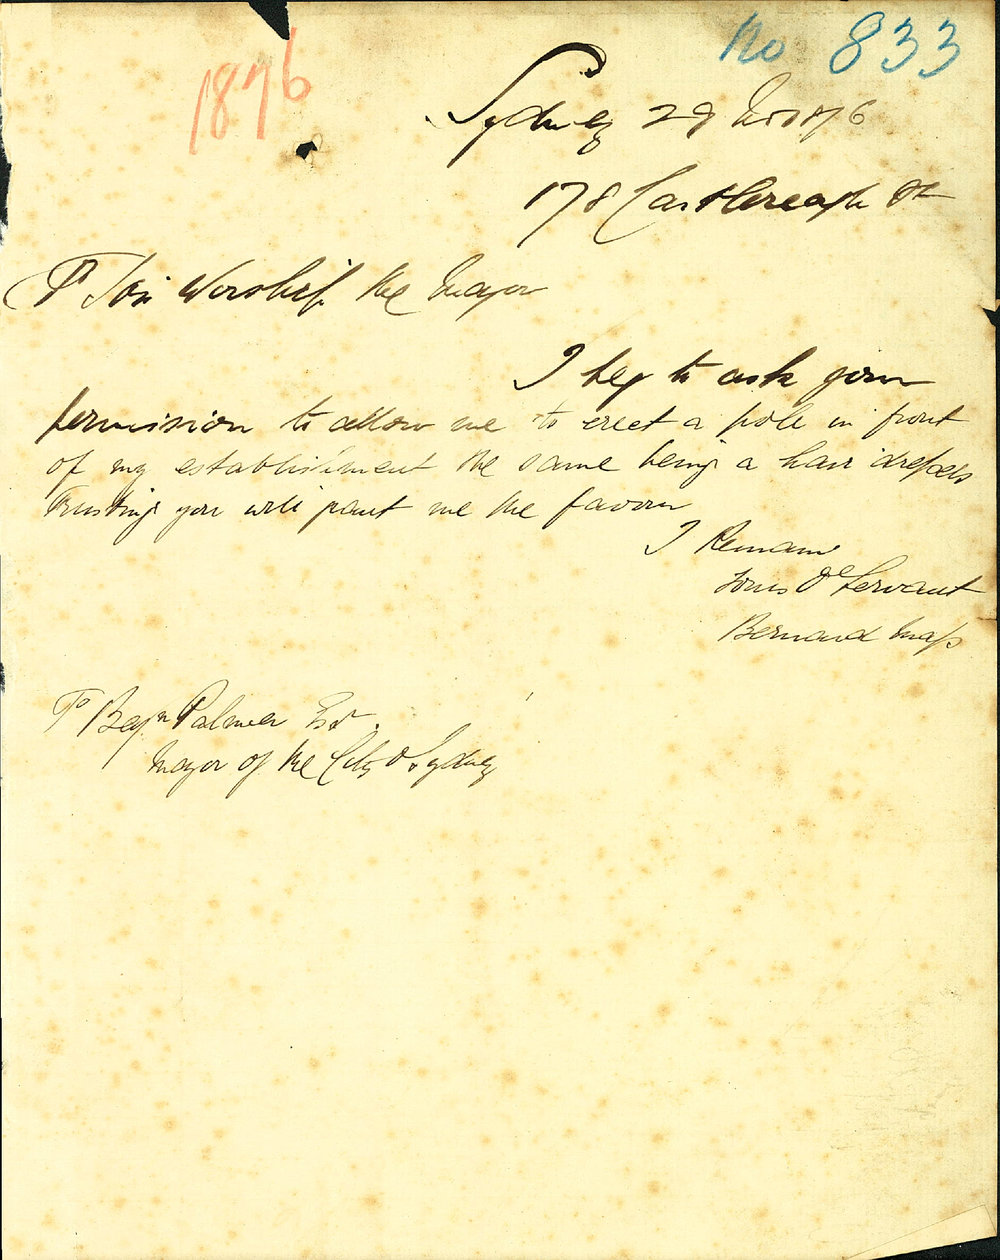 No 833
1876
Sydney 29 1876
178 Castlereagh St
To His Worship the Mayor
I beg to ask your
permission to allow me to erect a pole in front
of my establishment the same being a hair dressers
Trusting you will grant me the favour
I Remain
Yours Ot Servant
Bernard Mass
To Benjn Palmer Esq
Mayor of the City of Sydney